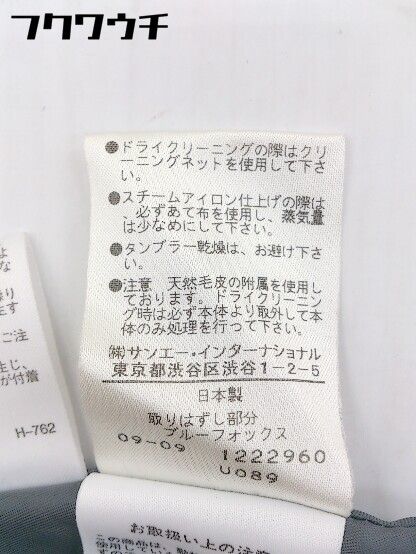 フクワウチ
●ドライクリーニングの際はクリ
ーニングネットを使用して下さ
い。
●スチームアイロン仕上げの際は
、必ずあて布を使用し、蒸気量
は少なめにして下さい。
●タンブラー乾燥は、お避け下さ
い。
●注意 天然毛皮の附属を使用し
ております。ドライクリーニン
グ時は必ず本体より取外して本
体のみ処理を行って下さい。
㈱サンエー・インターナショナル
東京都渋谷区渋谷1-2-5
日本製
取りはずし部分
ブルーフォックス
09-09 1222960
U089
ご注
生じ、
が付着
H-762
お取扱い上の注意
この商品は、
使用してい